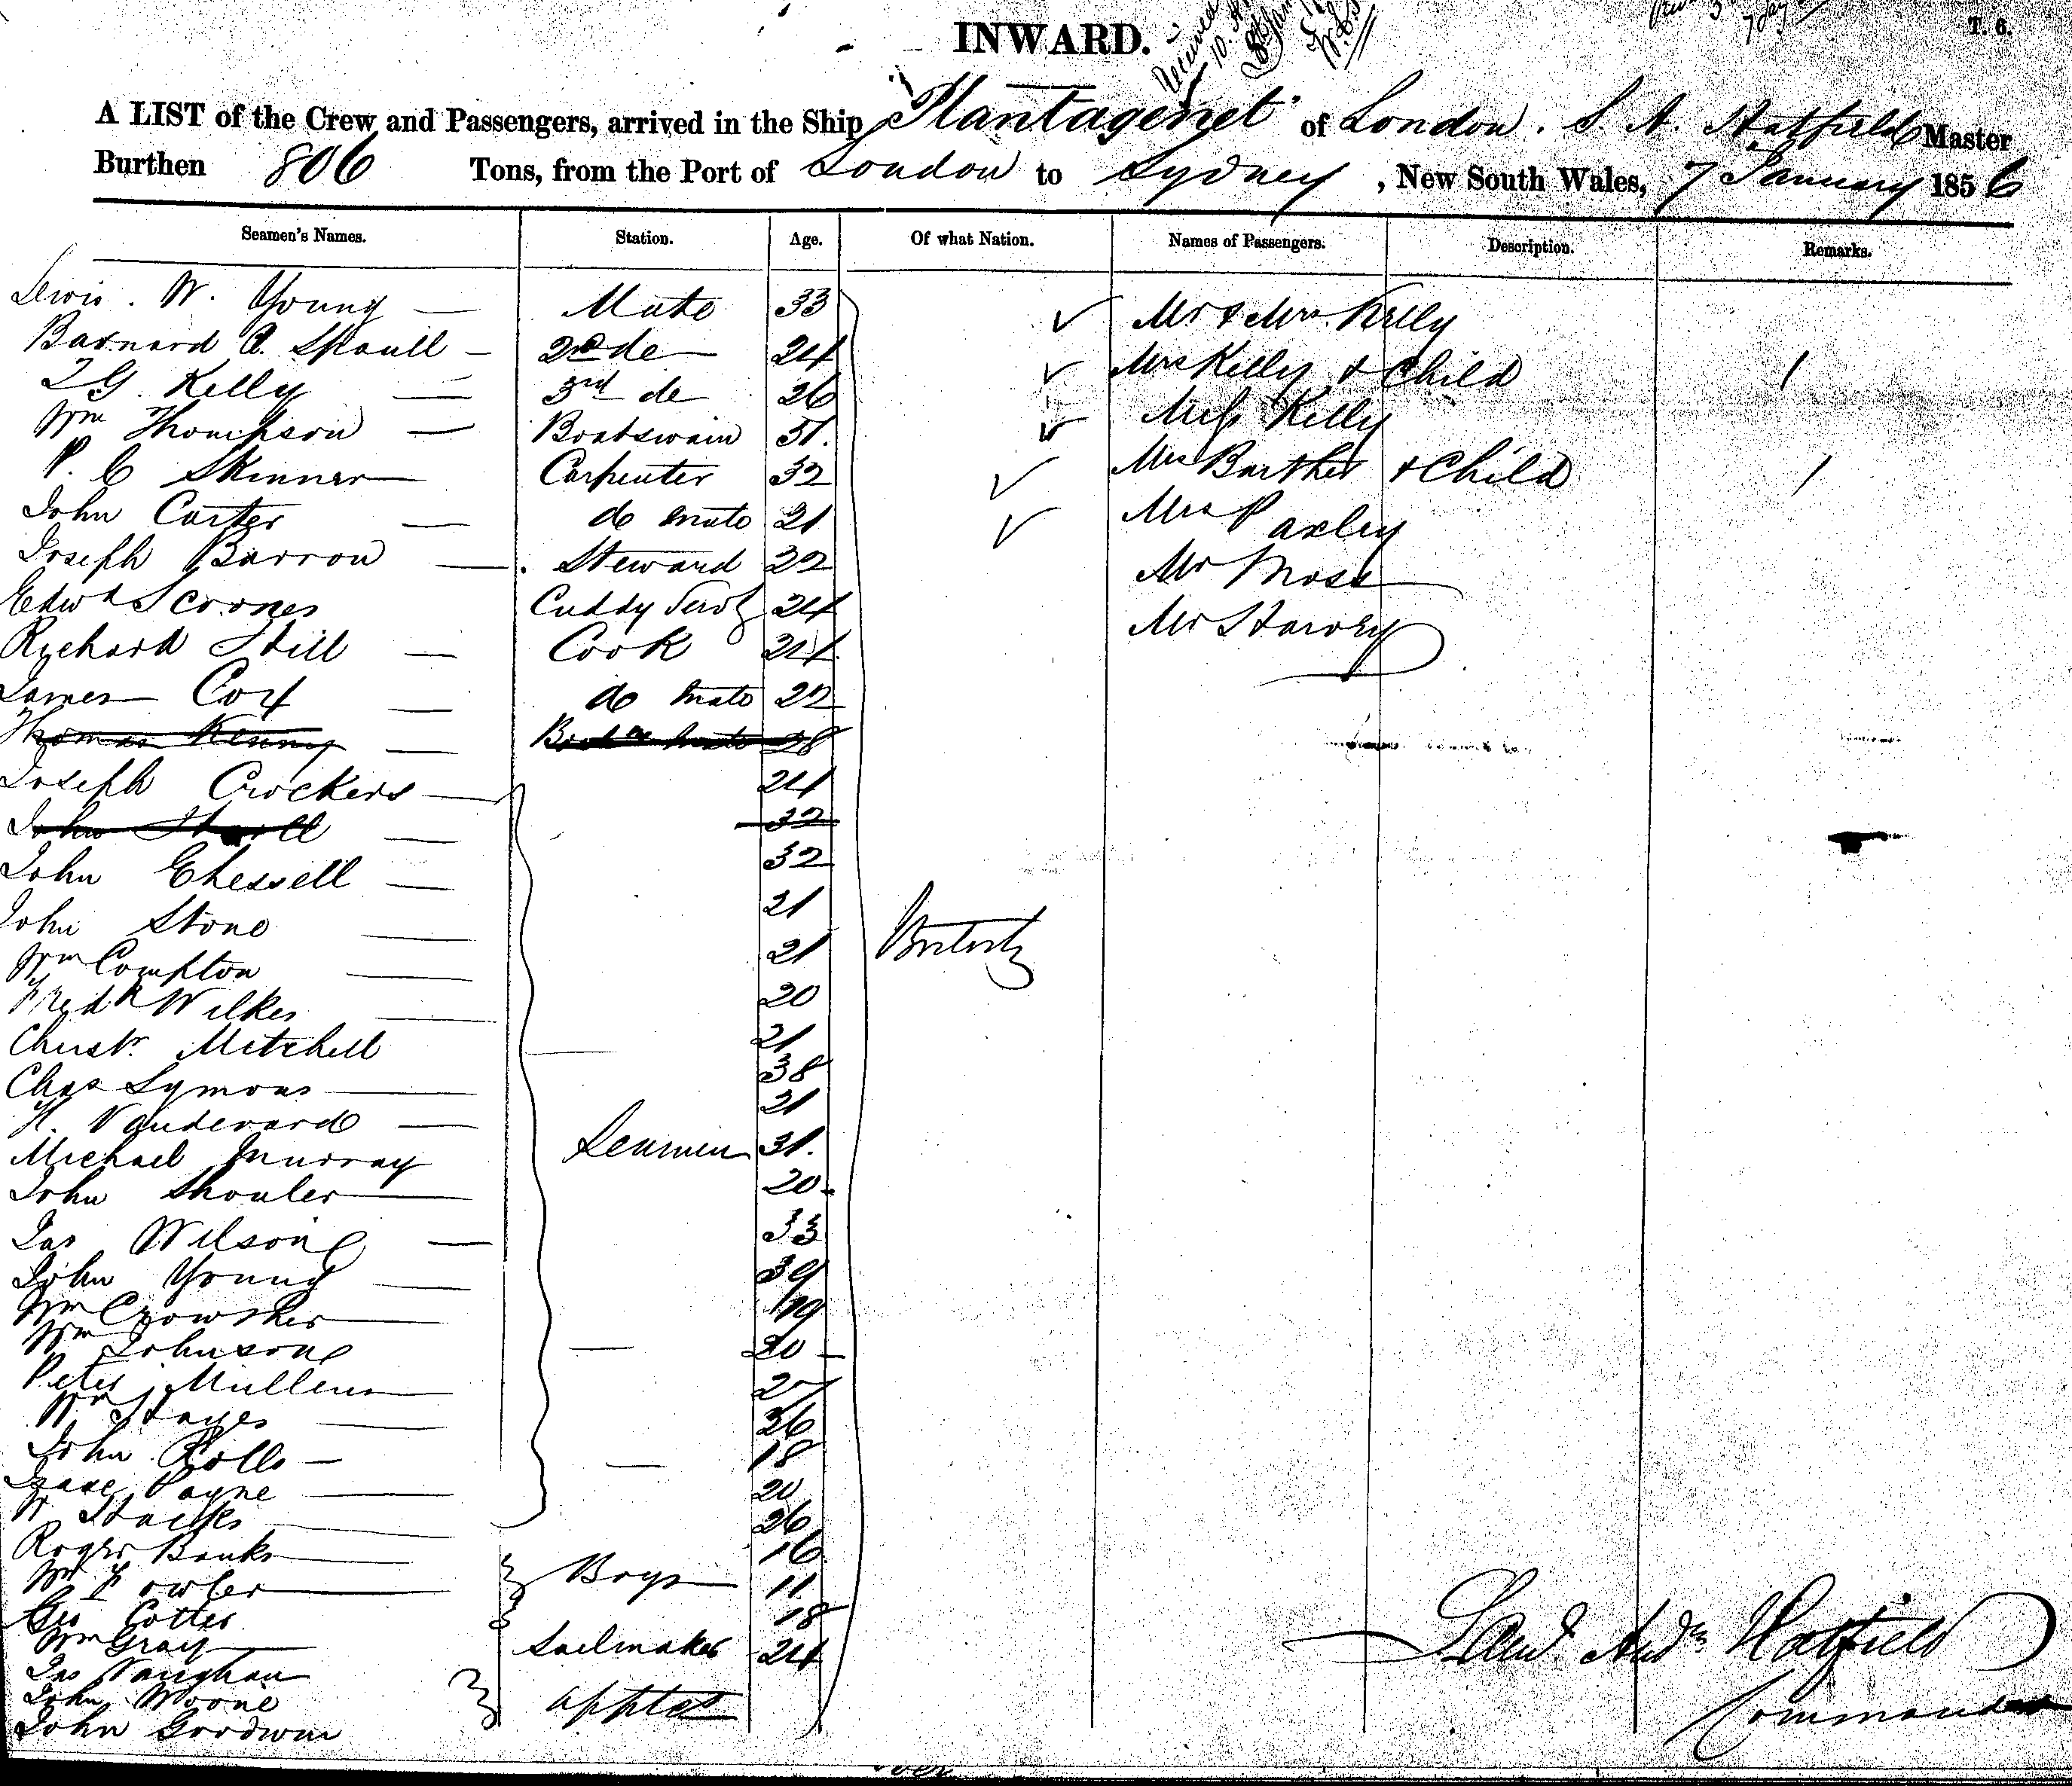 INWARD.
T. 6.
A LIST of the Crew and Passengers, arrived in the Ship "Plantagenet" of London. S. A. Hatfield Master
Burthen 806 Tons, from the Port of London to Sydney, New South Wales, 7 January 1856
Seamen's Names. Station. Age. Of what Nation. Names of Passengers. Description. Remarks.
Lewis. W. Young — Mate 33 Mr & Mrs Kelly
Barnard — 2nd do 24 Mrs Kelly & Child 1
T G. Kelly — 3rd do 26 Miss Kelly
Wm Thompson — Boatswain 51. Mrs & Child 1
P. C Skinner — Carpenter 32 Mrs Paxley
John Carter — do mate 21 Mr Moss
Joseph Barron — Steward 22 Mr Harvey
Edwd Scoones Cuddy Servt 24
Richard Hill — Cook 24
James Cox — do mate 22
Thomas Kenny — 28
Joseph Crockers — 24
John — 32
John Chessell — 32
John Stone — 21
Wm Compton — 21 British
Fredk Wilkes — 20
Christr. Mitchell 21
Chas Symons — 38
H. Vandevard — 21
Michael Murray Seamen 31.
John Shouler — 20.
Jas Wilson — 33
John Young — 39
Wm Crowther — 19
Wm Johnson — 20
Peter Mullens —
Wm Hayes — 26
John Rolls — 18
Isaac Payne — 20
W — 26
Roger Banks — 16
Wm Fowler — Boys 11
Geo Cotter 18
Wm Gray — Sailmaker 24
Jas Vaughan
John Moone apptes
John Goodwin
Saml Andw Hatfield
Commander
over